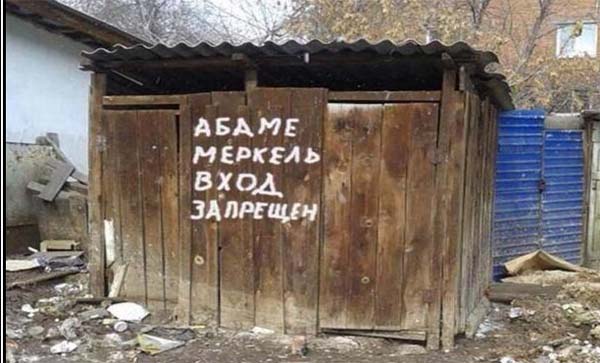 АБАМЕ
МЕРКЕЛЬ
ВХОД
ЗАПРЕЩЕН